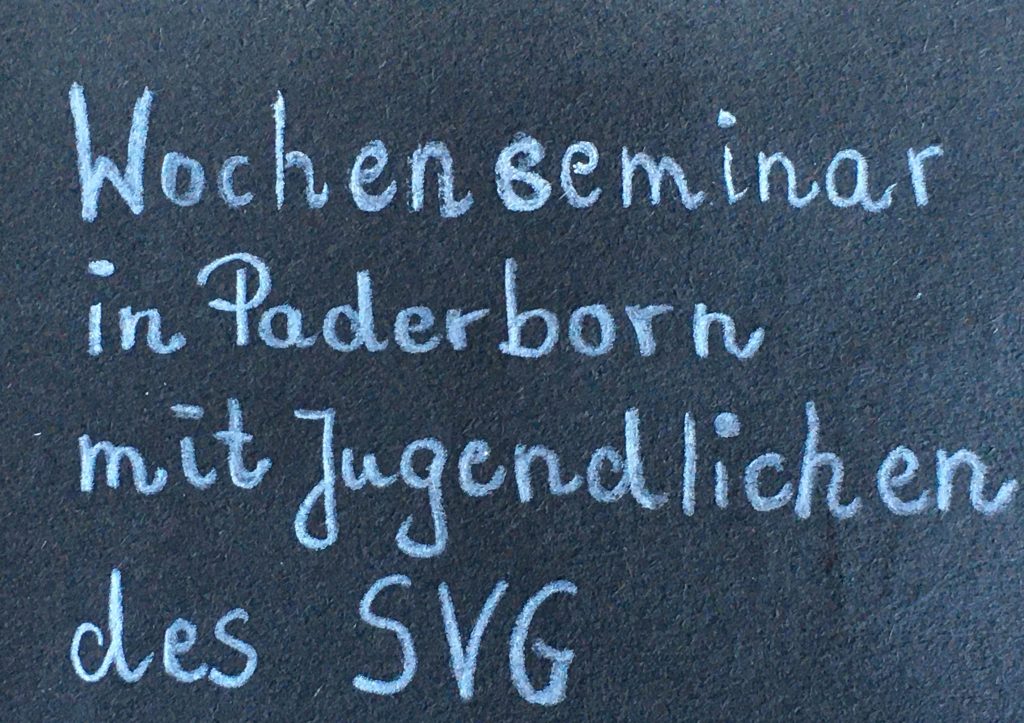 Wochenseminar
in Paderborn
mit Jugendlichen
des SVG